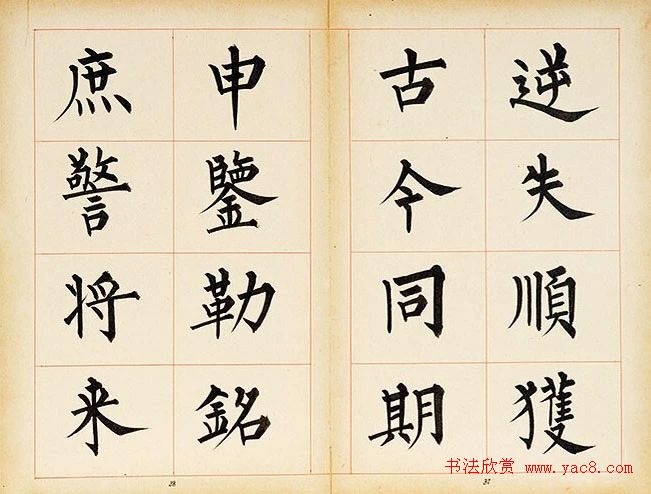 逆失順獲
古今同期
申鑒勒銘
庶警将来
37
38
书法欣赏 www.yac8.com